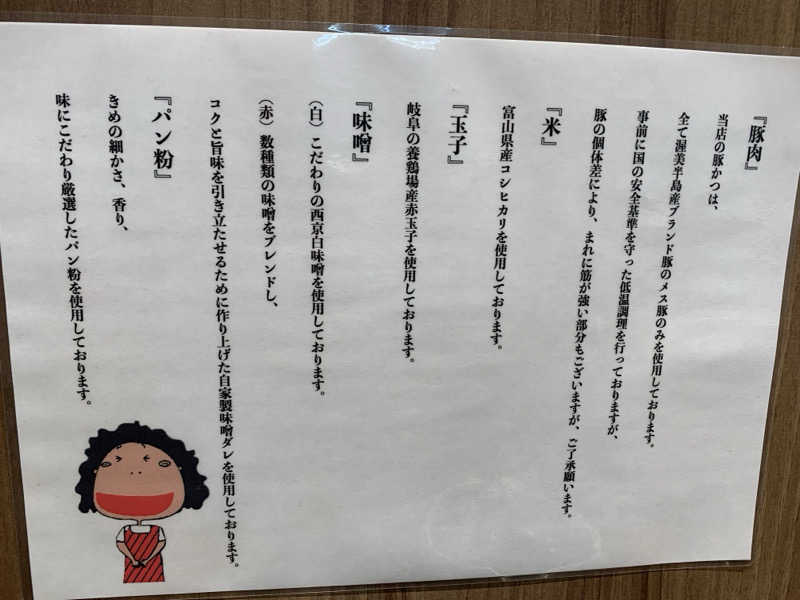 『豚肉』
当店の豚かつは、
全て渥美半島産ブランド豚のメス豚のみを使用しております。
事前に国の安全基準を守った低温調理を行っておりますが、
豚の個体差により、まれに筋が強い部分もございますが、ご了承願います。
『米』
富山県産コシヒカリを使用しております。
『玉子』
岐阜の養鶏場産赤玉子を使用しております。
『味噌』
(白) こだわりの西京白味噌を使用しております。
(赤) 数種類の味噌をブレンドし、
コクと旨味を引き立たせるために作り上げた自家製味噌ダレを使用しております。
『パン粉』
きめの細かさ、香り、
味にこだわり厳選したパン粉を使用しております。